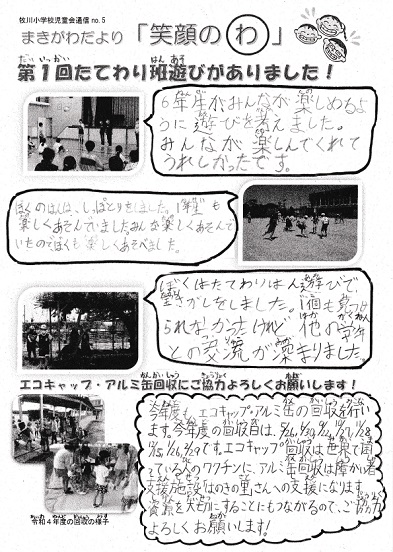 牧川小学校児童会通信 no.5
まきがわだより「笑顔の わ 」
第1回たてわり班遊びがありました！
6年生がみんなが楽しめるよ
うに遊びを考えました。
みんなが楽しんでくれて
うれしかったです。
ぼくのはんは、しっぽとりをしました。1年生も
楽しくあそんでいました。みんな楽しくあそんで
いたのでぼくも楽しくあそべました。
ぼくはたてわりはん遊びで、
さがしをしました。1個も見つけ
られなかったけれど、他の学年
との交流が深まりました。
エコキャップ・アルミ缶回収にご協力よろしくお願いします！
今年度も、エコキャップ・アルミ缶の回収を行い
ます。今年度の回収日は、
です。エコキャップ回収は世界で困
っている人のワクチンに、アルミ缶回収は障がい者
支援施設 さんへの支援になります。
資源を大切にすることにもつながるので、ご協力
よろしくお願いします！
令和4年度の回収の様子